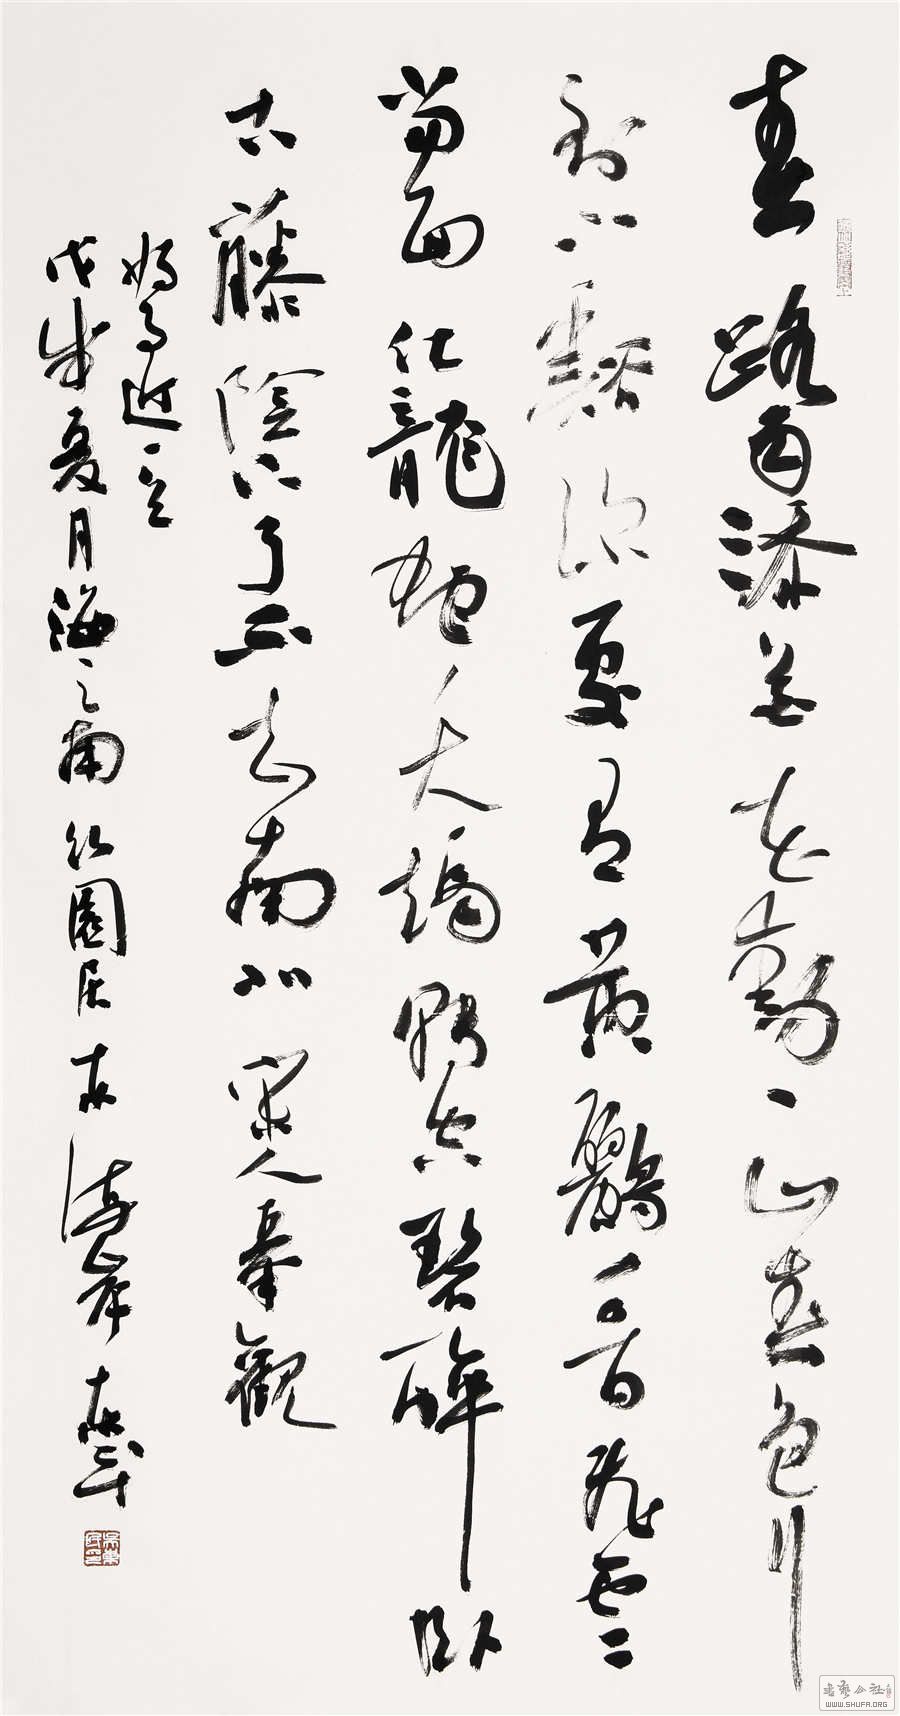 春路雨添花花動一山春色行
到小谿深處有黄鸝千百飛雲
當面化龍蛇夭矯轉空碧醉臥
古藤陰下了不知南北宋人秦觀
好事近一
戊戌夏月海之南園居
书艺公社
WWW.SHUFA.ORG